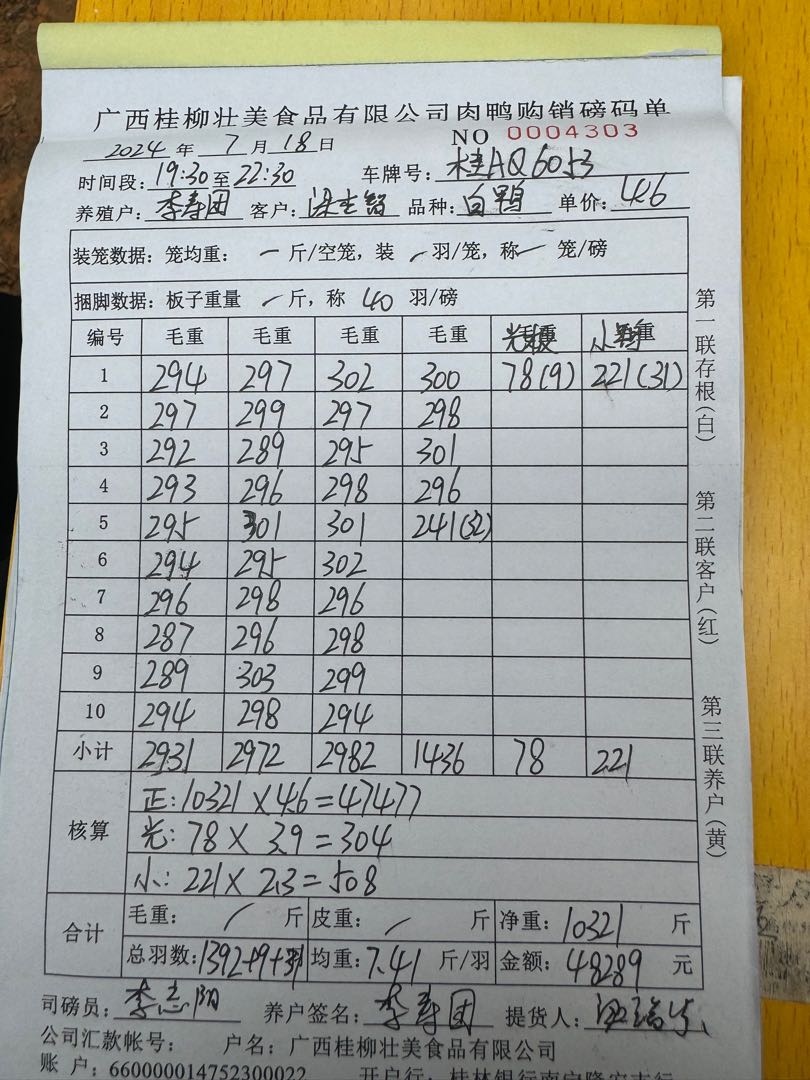 广西桂柳壮美食品有限公司肉鸭购销磅码单
NO 0004303
2024 年 7 月 18 日
时间段: 19:30 至 22:30 车牌号: 桂AQ6053
养殖户: 李寿团 客户: 品种: 白鸭 单价: 4.6
装笼数据: 笼均重: 一 斤/空笼, 装 / 羽/笼, 称 一 笼/磅
捆脚数据: 板子重量 / 斤, 称 40 羽/磅
编号 毛重 毛重 毛重 毛重 小鸭
1 294 297 302 300 78(9) 221(31)
2 297 299 297 298
3 292 289 295 301
4 293 296 298 296
5 295 301 301 241(32)
6 294 295 302
7 296 298 296
8 287 296 298
9 289 303 299
10 294 298 294
小计 2931 2972 2982 1436 78 221
核算
正: 10321 × 4.6 = 47477
光: 78 × 3.9 = 304
小: 221 × 2.3 = 508
合计
毛重: / 斤 皮重: / 斤 净重: 10321 斤
总羽数: 1392+9+31 均重: 7.41 斤/羽 金额: 48289 元
司磅员: 李志阳 养户签名: 李寿团 提货人:
公司汇款帐号: 户名: 广西桂柳壮美食品有限公司
账 户: 660000014752300022 开户行: 桂林银行南宁隆安支行
第一联存根(白)
第二联客户(红)
第三联养户(黄)